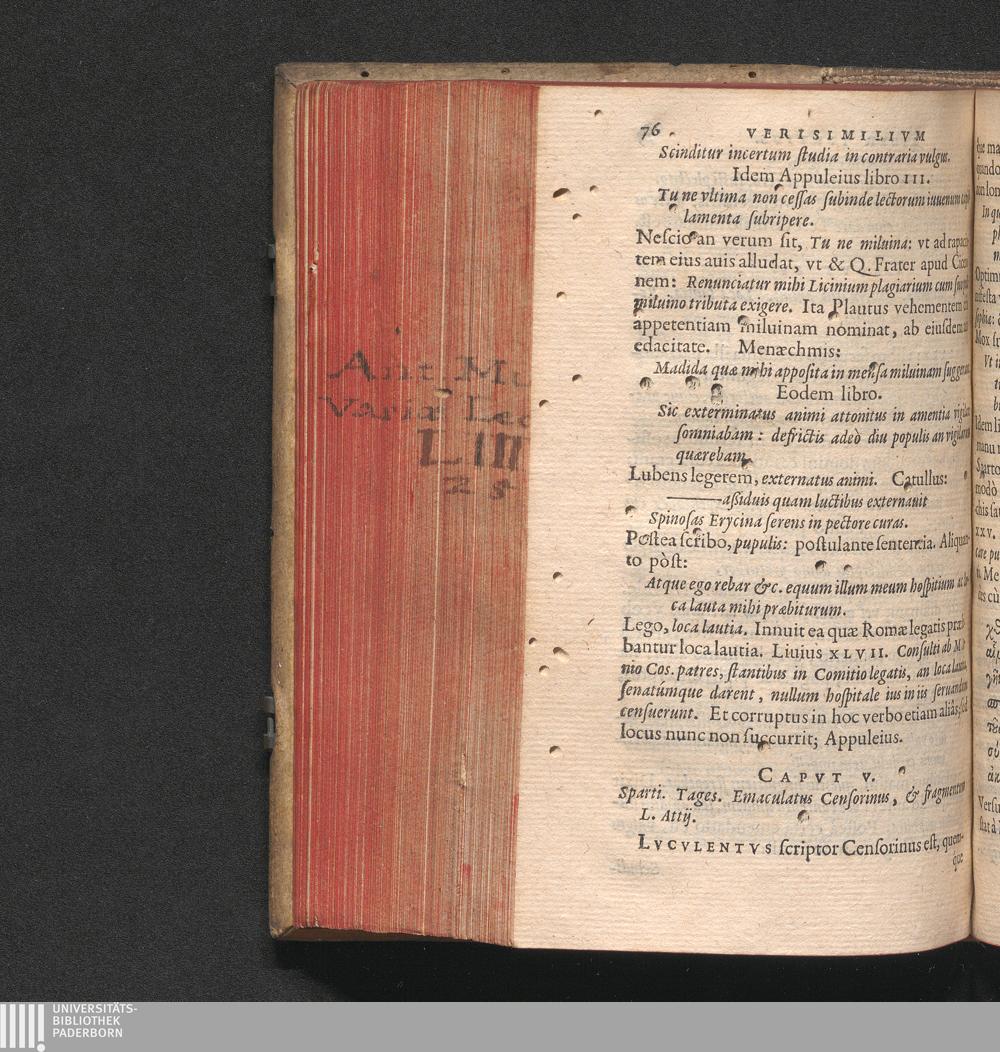 76 VERISIMILIVM
Scinditur incertum ſtudia in contraria vulgus.
Idem Appuleius libro III.
Tu ne vltima non ceſſas ſubinde lectorum iuuenum
lamenta ſubripere.
Neſcio an verum ſit, Tu ne miluina: vt ad rapaci-
tem eius auis alludat, vt & Q. Frater apud Cice
nem: Renunciatur mihi Licinium plagiarium cum ſuo
miluino tributa exigere. Ita Plautus vehementem
appetentiam miluinam nominat, ab eiuſdem
edacitate. Menæchmis:
Madida quæ mihi appoſita in menſa miluinam ſugge
Eodem libro.
Sic exterminatus animi attonitus in amentia vigilans
ſomniabam: defrictis adeò diu populis an vigilarem
quærebam.
Lubens legerem, externatus animi. Catullus:
——aſſiduis quam luctibus externauit
Spinoſas Erycina ſerens in pectore curas.
Poſtea ſcribo, pupulis: poſtulante ſententia. Aliquan-
to pòſt:
Atque ego rebar &c. equum illum meum hoſpitium ac lo-
ca lauta mihi præbiturum.
Lego, loca lautia. Innuit ea quæ Romæ legatis præ
bantur loca lautia. Liuius XLVII. Conſulti ab M.
nio Cos. patres, ſtantibus in Comitio legatis, an loca lautia,
ſenatúmque darent, nullum hoſpitale ius in iis ſeruandum
cenſuerunt. Et corruptus in hoc verbo etiam aliàs, ſed
locus nunc non ſuccurrit; Appuleius.
CAPVT V.
Sparti. Tages. Emaculatus Cenſorinus, & fragmentum
L. Attij.
LVCVLENTVS ſcriptor Cenſorinus eſt, quem-
que
Ant. Mu
Variæ Lec
LIII
28
UNIVERSITÄTS-
BIBLIOTHEK
PADERBORN